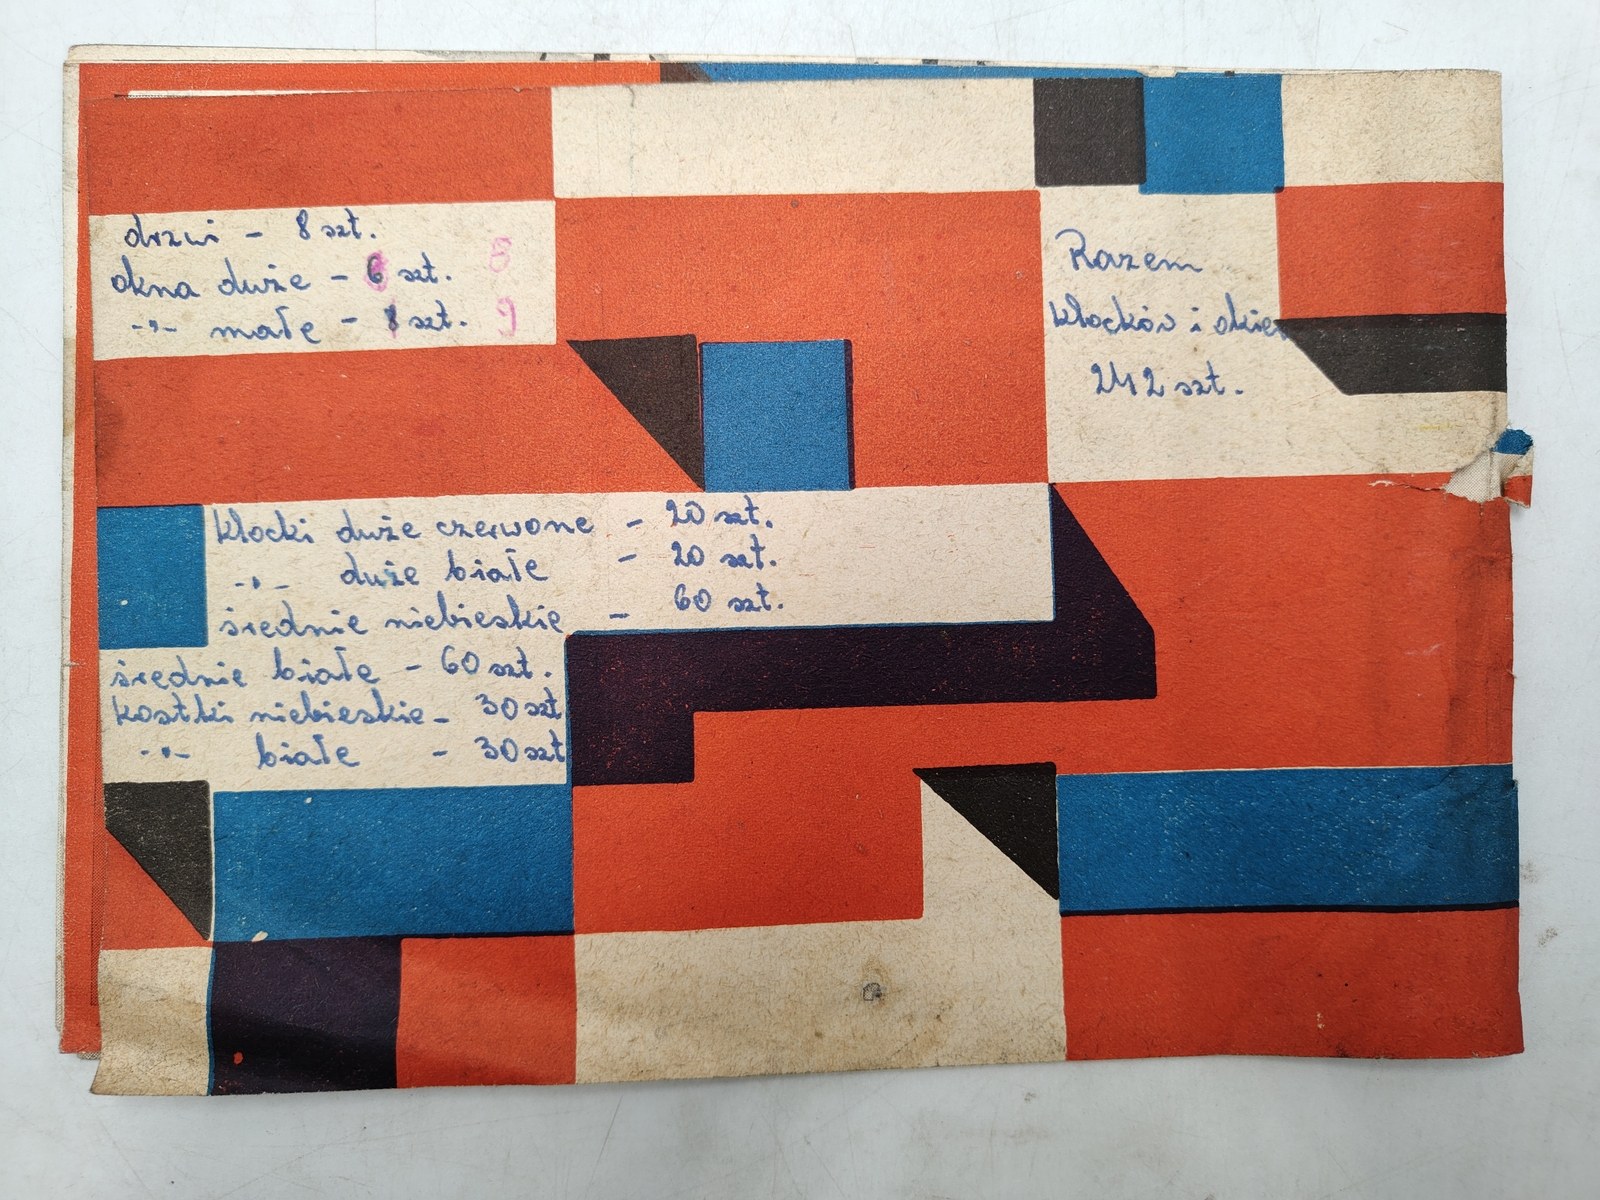 drzwi - 8 szt.
okna duże - 6 szt. 8
-"- małe - 8 szt. 9
Razem
klocków i okien
242 szt.
klocki duże czerwone - 20 szt.
-"- duże białe - 20 szt.
średnie niebieskie - 60 szt.
średnie białe - 60 szt.
kostki niebieskie - 30 szt
-"- białe - 30 szt